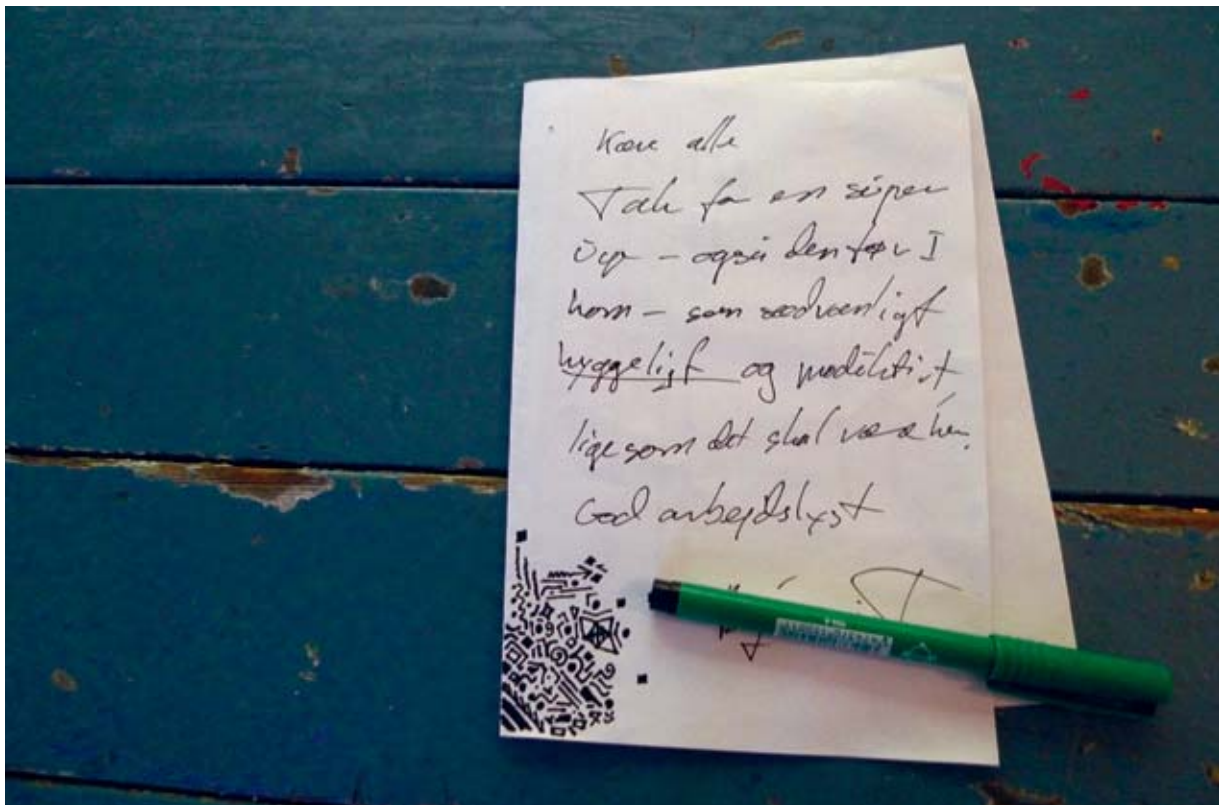 Kære alle
Tak for en super
uge – også den før I
kom – som sædvanligt
hyggeligt og
lige som det skal være her.
God arbejdslyst